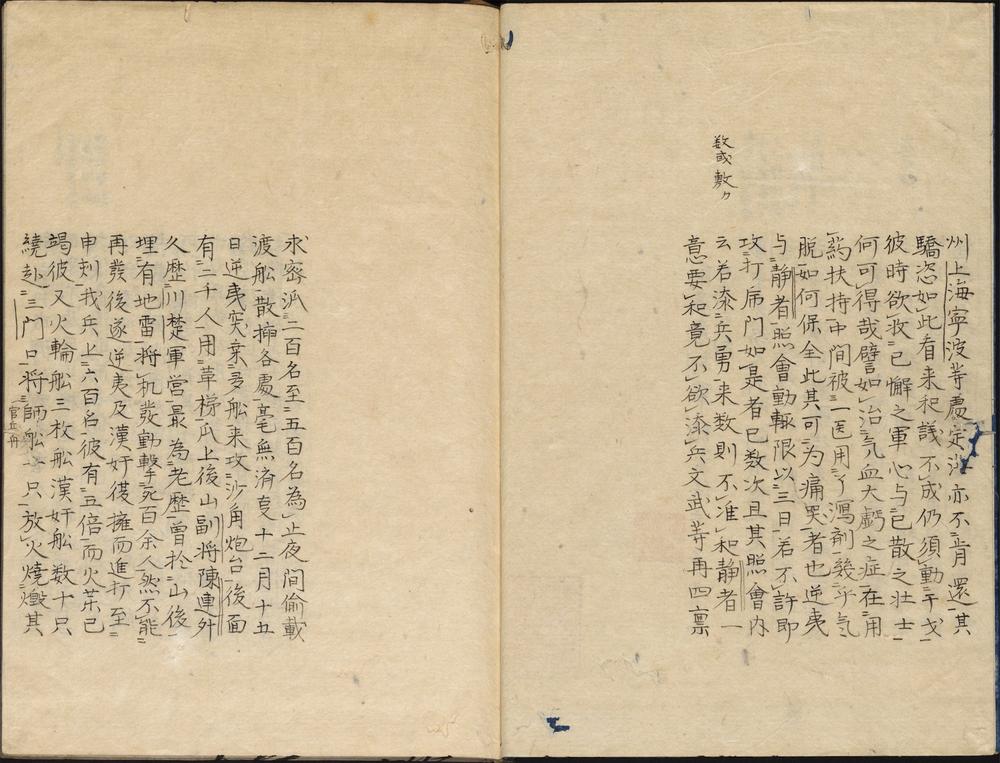 数或敷カ
州上海寧波等處定沙亦不肯還其
驕恣如此看来和議不成仍須動干戈
彼時欲收已懈之軍心与已散之壮士
何可得哉譬如治気血大虧之症在用
薬扶持中間被一医用了瀉剤幾乎気
脱如何保全此其可为痛哭者也逆夷
与静者照會動輙限以三日若不許即
攻打虎門如是者已数次且其照會内
云若添兵勇来数則不准和静者一
意要和竟不欲添兵文武等再四禀
求密派二百名至五百名為止夜間偷載
渡船散揷各處毫無済㕝十二月十五
日逆夷突来多船来攻沙角炮台後面
有二千人用草梯爪上後山副将陳連升
久歴川楚軍営最為老歴曽於山後
埋有地雷将机發動撃死百余人然不能
再發後遂逆夷及漢奸後擁而進打至
申刻我兵止六百名彼有五倍而火茱已
竭彼又火輪船三枚船漢奸船数十只
繞赴三門口将師船一只放火燒燬其
官兵舟